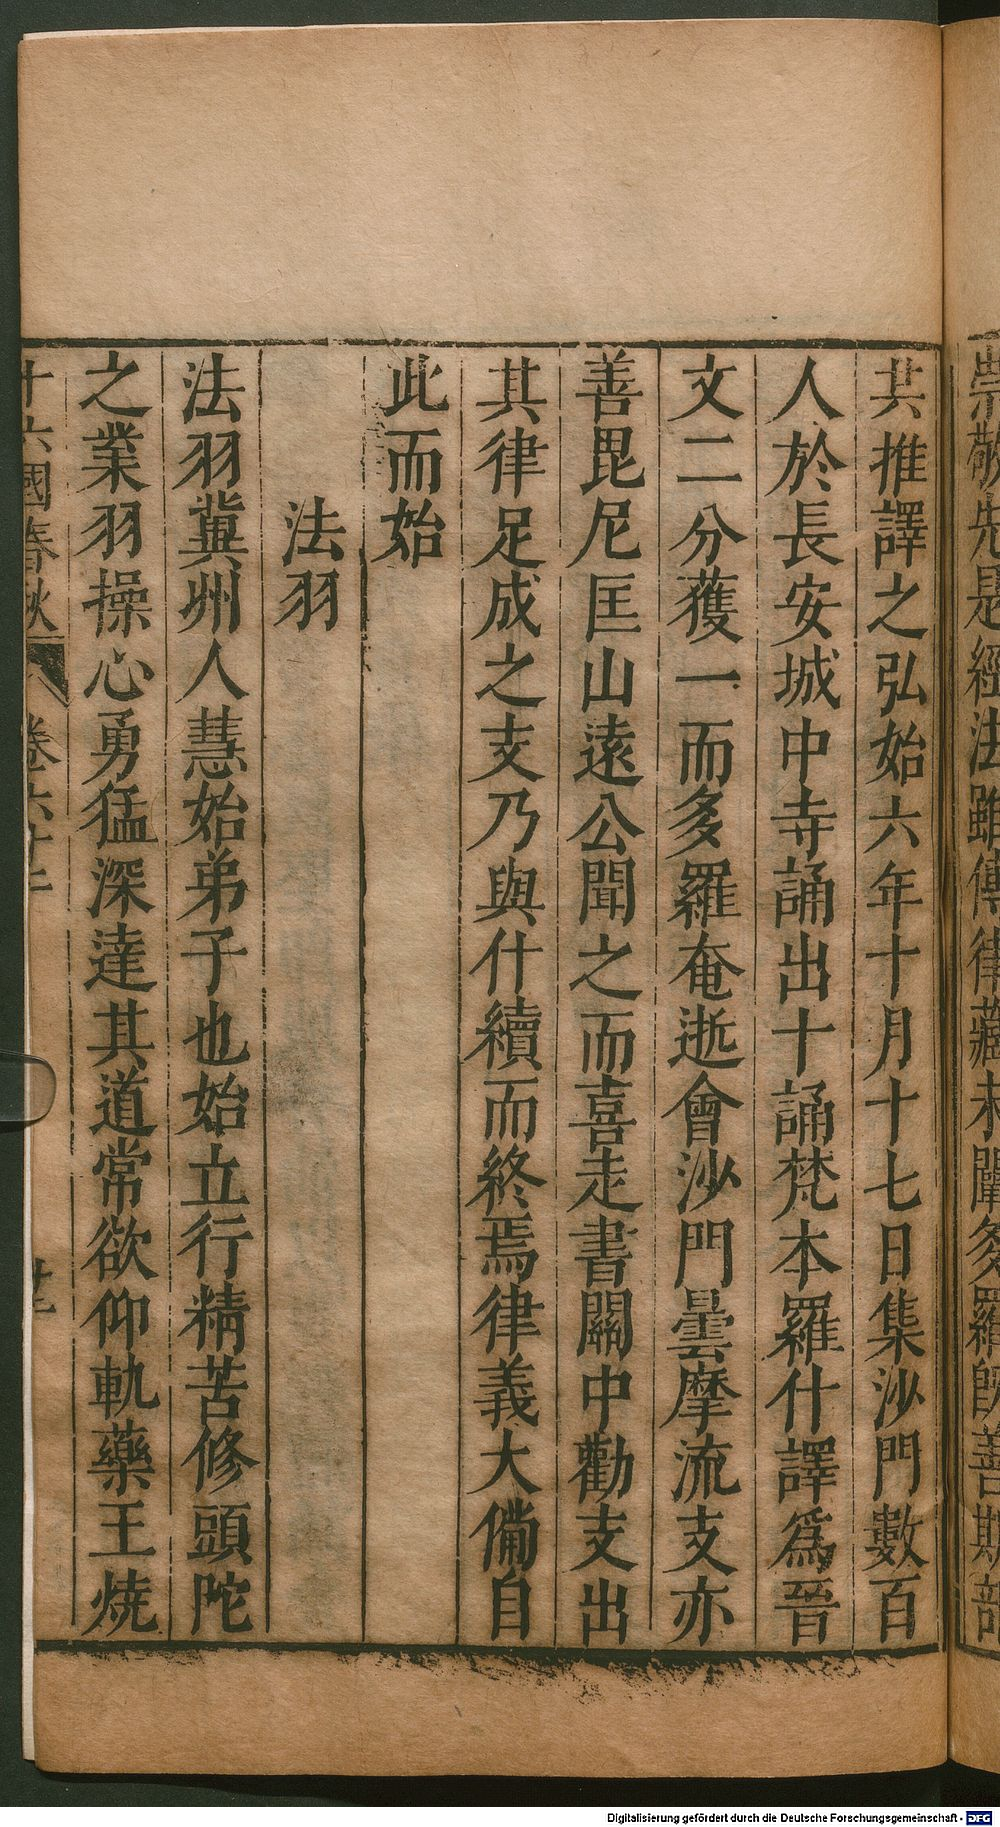 崇敬先是經法雖傳律藏未闡多羅既善斯部
共推譯之弘始六年十月十七日集沙門數百
人於長安城中寺誦出十誦梵本羅什譯爲晉
文二分獲一而多羅奄逝會沙門曇摩流支亦
善毘尼匡山遠公聞之而喜走書關中勸支出
其律足成之支乃與什續而終焉律義大備自
此而始
法羽
法羽冀州人慧始弟子也始立行精苦修頭陀
之業羽操心勇猛深達其道常欲仰軌藥王燒
十六國春秋 卷六十二
Digitalisierung gefördert durch die Deutsche Forschungsgemeinschaft - DFG